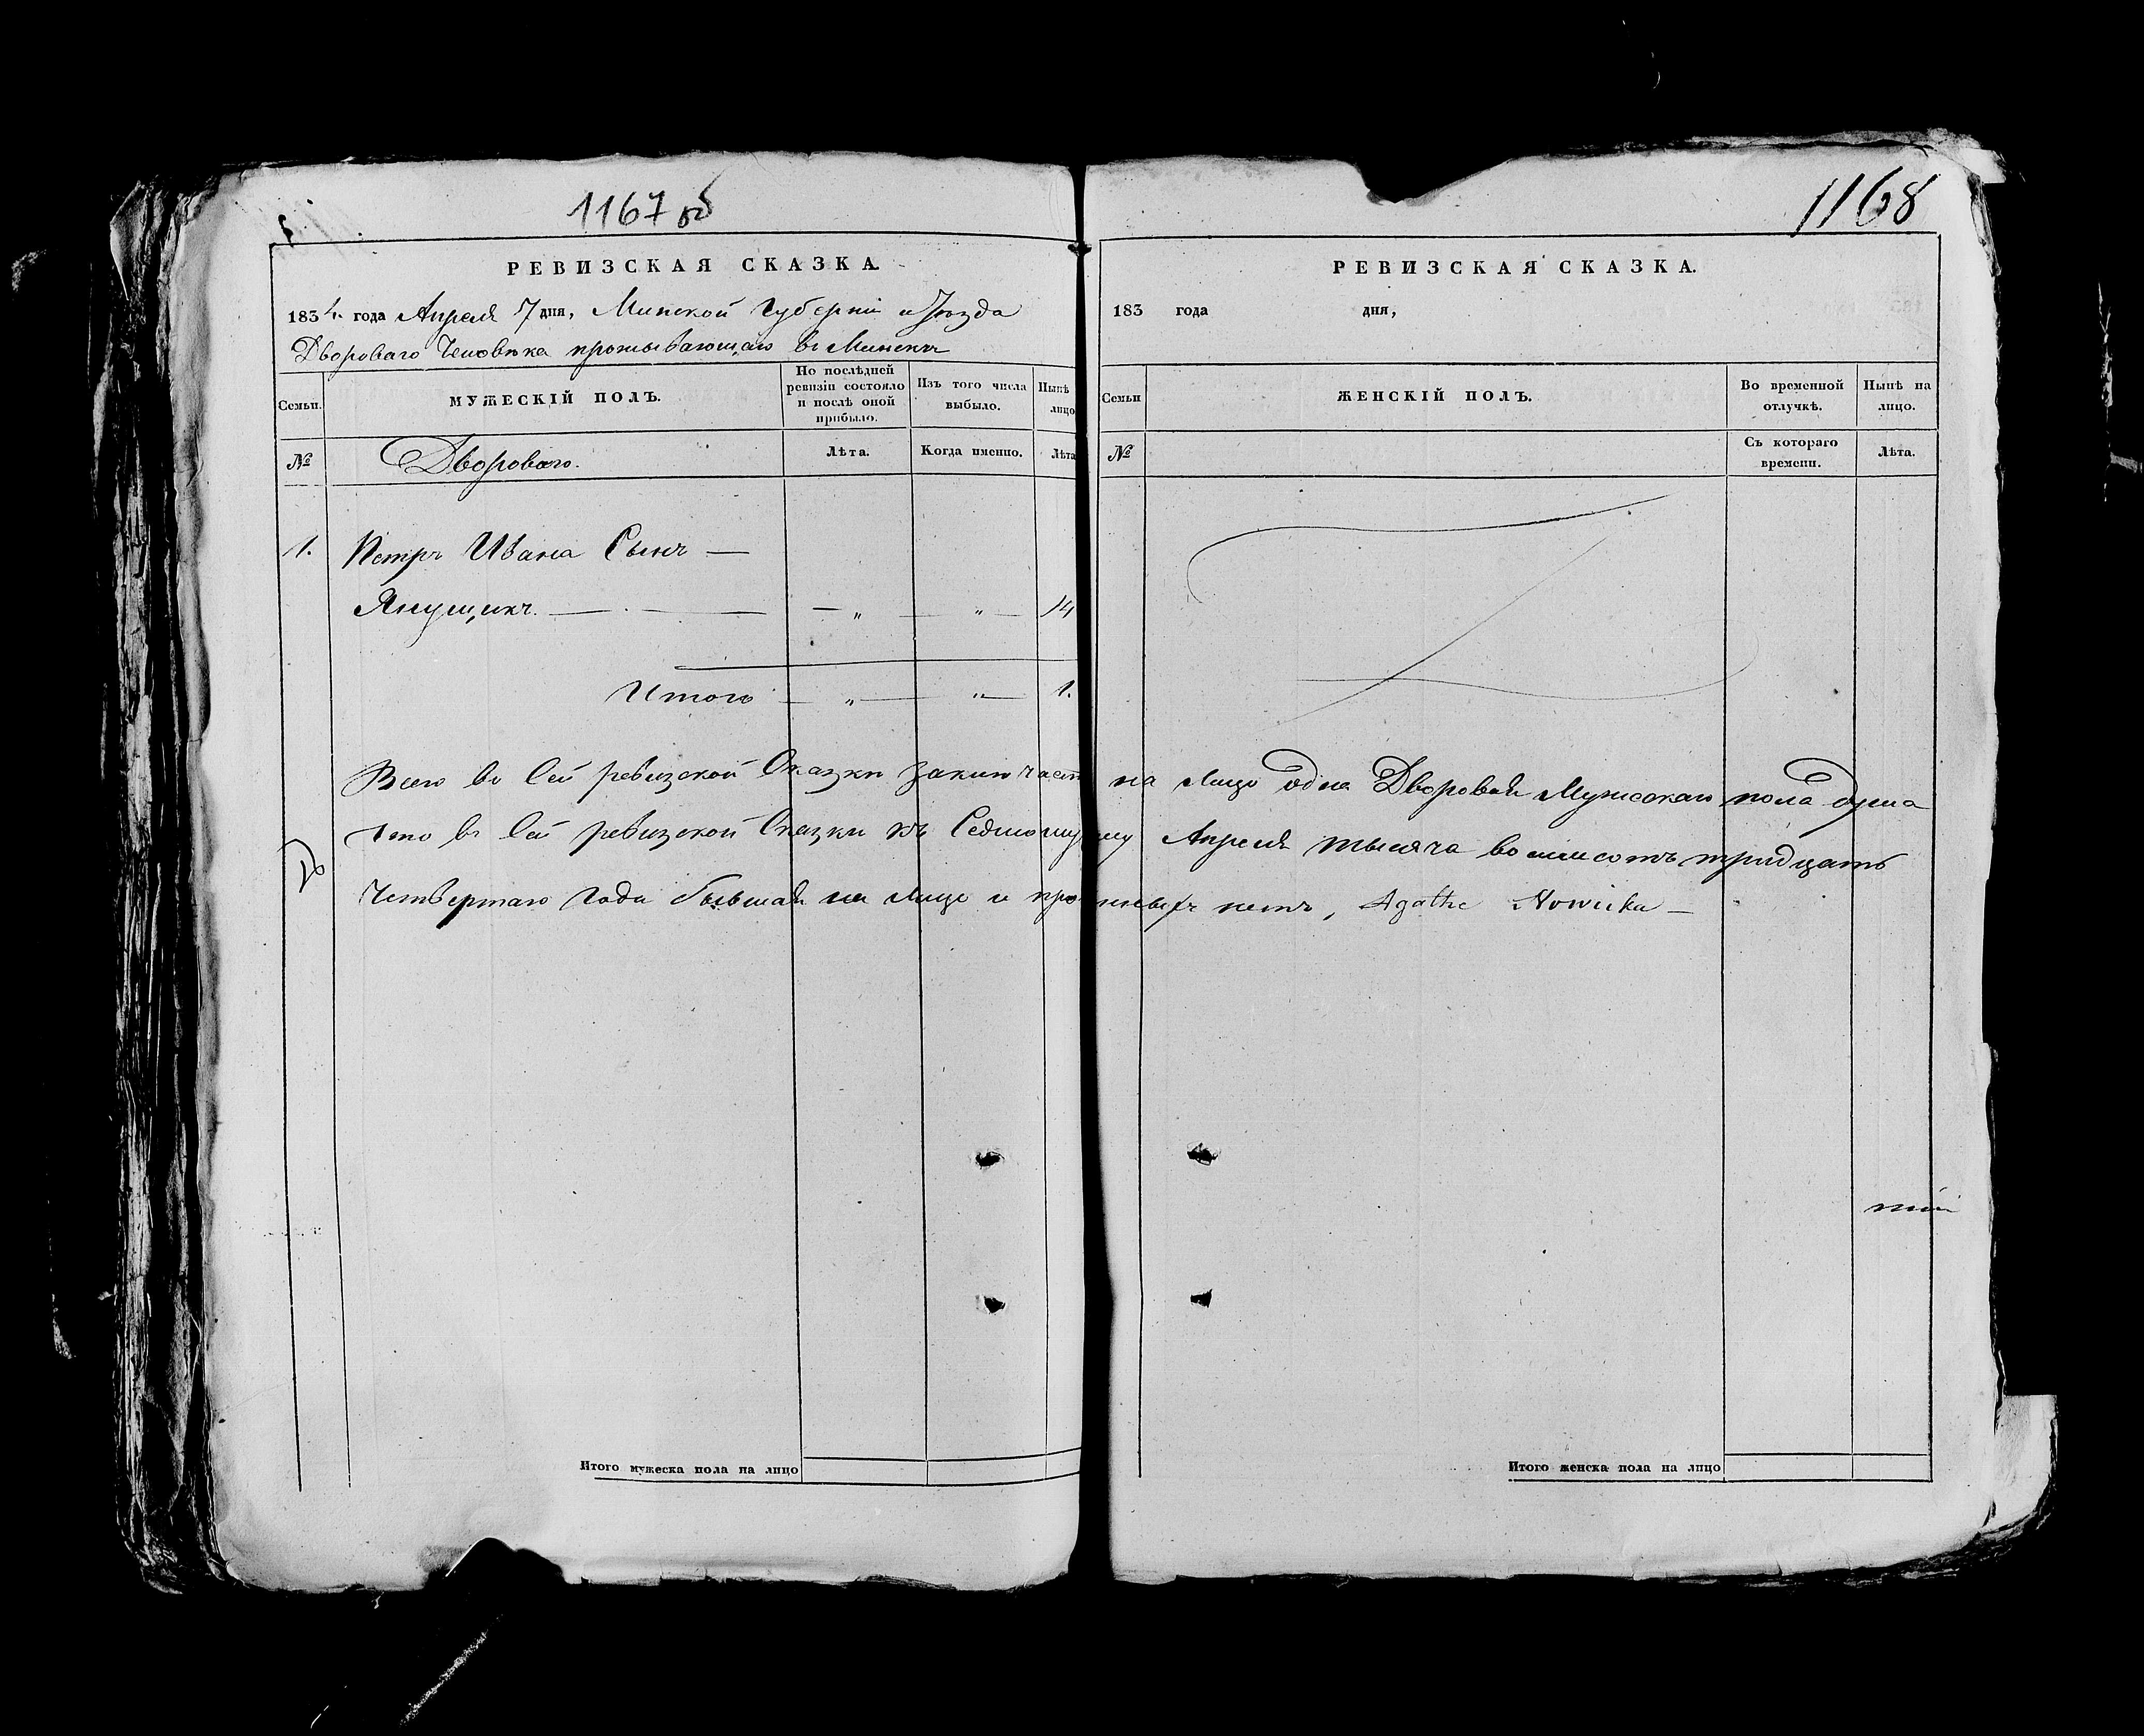 1167 об
РЕВИЗСКАЯ СКАЗКА.
1834. года Апреля 7 дня, Минской Губерніи и Уѣзда
Двороваго Человѣка проживающаго въ Минскѣ
Семьи.
МУЖЕСКІЙ ПОЛЪ.
По послѣдней ревизіи состояло и послѣ оной прибыло.
Изъ того числа выбыло.
Нынѣ лицо
№
Двороваго.
Лѣта.
Когда именно.
Лѣта
1. Петръ Ивана Сынъ —
Янущикъ. — — — „ — „ — 14
Итого — „ — „ — 1.
Всего во Сей ревизской Сказки заключает
Что в Сей ревизской Сказки къ Седмому
Четвертаго Года бывшая на лицо и про
Итого мужеска пола на лицо
1168
РЕВИЗСКАЯ СКАЗКА.
183 года дня,
Семьи
ЖЕНСКІЙ ПОЛЪ.
Во временной отлучкѣ.
Нынѣ на лицо.
№
Съ котораго времени.
Лѣта.
на лицо одна Дворовая Мужескаго пола душа
Апреля тысяча восмисотъ тридцать
нетъ, Agatha Nowicka —
Итого женска пола на лицо